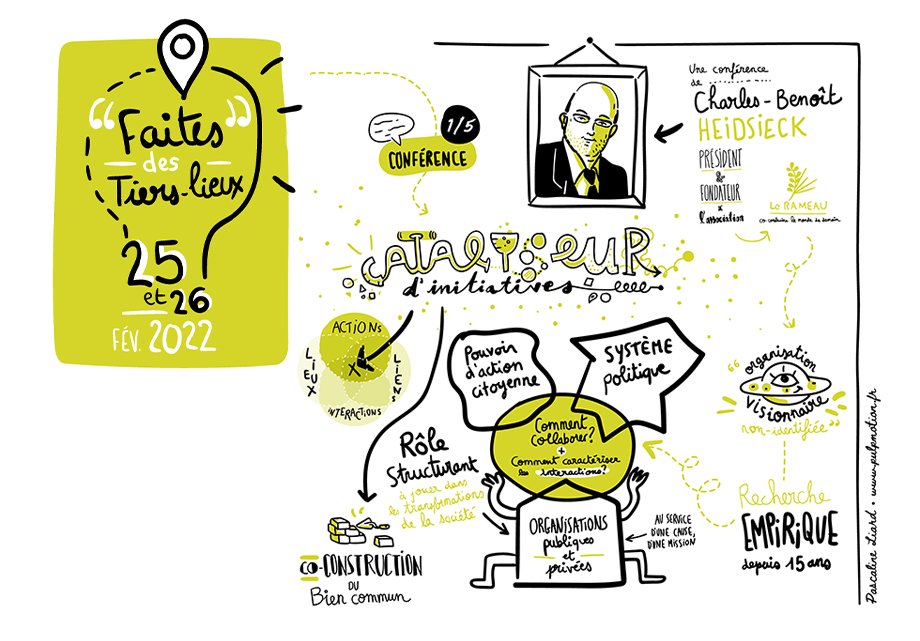 “Faites”
des
Tiers-lieux
25
et 26
FÉV. 2022
1/5
CONFÉRENCE
Une conférence
de
Charles-Benoît
HEIDSIECK
PRÉSIDENT
&
FONDATEUR
l'association
Le RAMEAU
co-construire le monde de demain
CATALYSEUR
d'initiatives
ACTIONS
LIEUX
LIENS
INTERACTIONS
Pouvoir
d'action
citoyenne
SYSTÈME
politique
Comment
collaborer?
+
Comment caractériser
les interactions?
ORGANISATIONS
publiques
et
privées
AU SERVICE
D'UNE CAUSE,
D'UNE MISSION
Rôle
Structurant
à jouer dans
les transformations
de la société
CO-CONSTRUCTION
DU
Bien commun
“organisation
visionnaire
non-identifiée”
Recherche
EMPIRIQUE
depuis 15 ans
Pascaline Liard · www.pulpmotion.fr